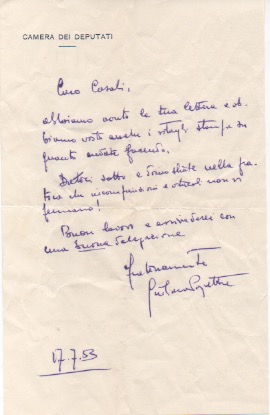 CAMERA DEI DEPUTATI
Caro Casali,
abbiamo avuto la tua lettera e ab-
biamo visto anche i ritagli stampa su
quanto andate facendo.
sotto e nella fa-
tica che incomprensioni e ostacoli non vi
fermano!
Buon lavoro e arrivederci con
una buona delegazione
Fraternamente
Giuliano Pajetta
17.7.53